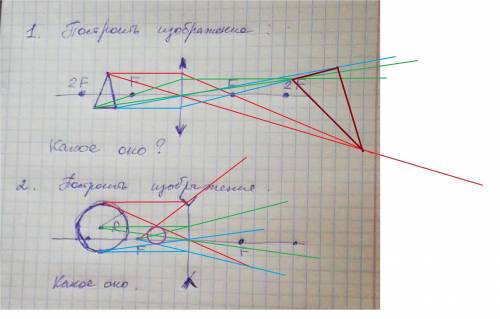 1. Построить изображение:
2F F F 2F
Какое оно?
2. Построить изображения.
F F
Какое оно.